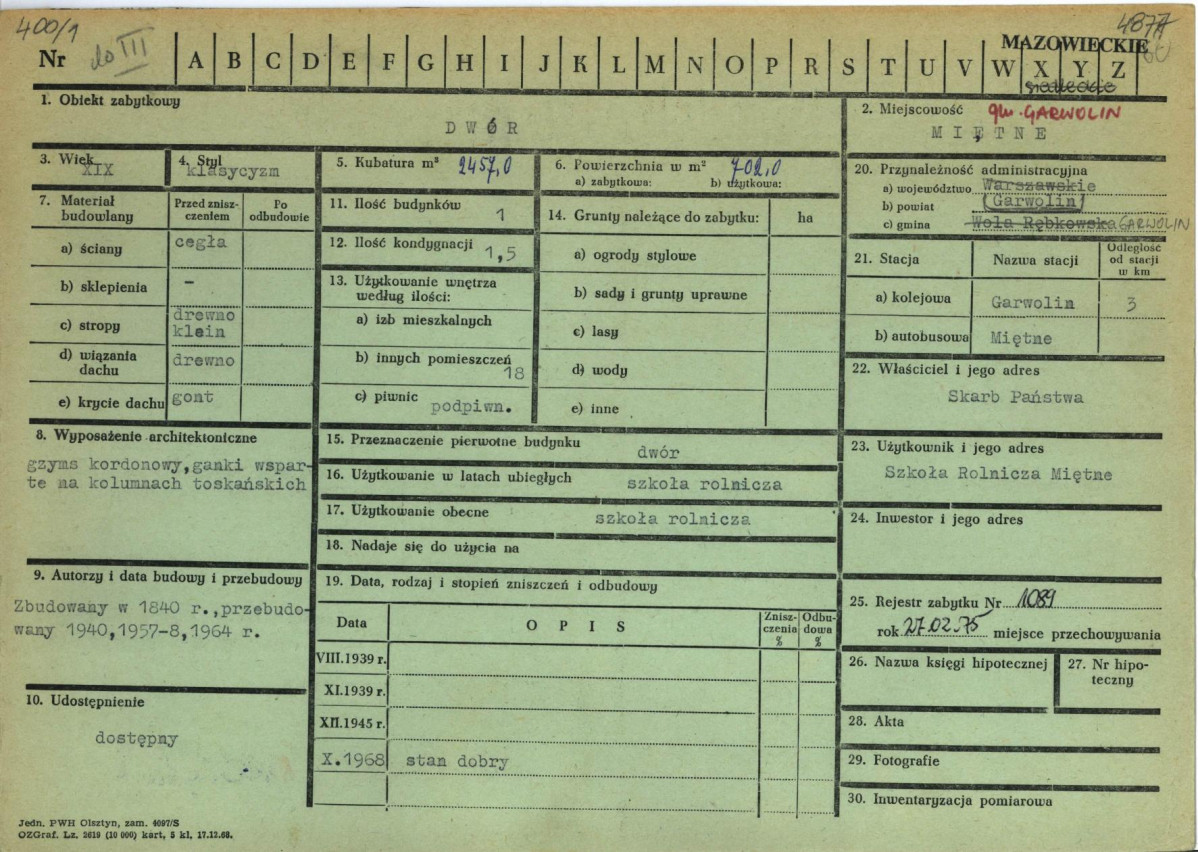 400/1
4877
Nr
do III
A B C D E F G H I J K L M N O P R S T U V W X Y Z
MAZOWIECKIE
siedleckie
1. Obiekt zabytkowy
DWÓR
2. Miejscowość gm. GARWOLIN
MIĘTNE
3. Wiek
XIX
4. Styl
klasycyzm
5. Kubatura m³ 2457,0
6. Powierzchnia w m² 702,0
a) zabytkowa: b) użytkowa:
20. Przynależność administracyjna
a) województwo Warszawskie
b) powiat (Garwolin)
c) gmina Wola Rębkowska GARWOLIN
7. Materiał budowlany
Przed zniszczeniem
Po odbudowie
a) ściany cegła
b) sklepienia -
c) stropy drewno
klein
d) wiązania dachu drewno
e) krycie dachu gont
11. Ilość budynków 1
12. Ilość kondygnacji 1,5
13. Użytkowanie wnętrza
według ilości:
a) izb mieszkalnych
b) innych pomieszczeń
18
c) piwnic podpiwn.
14. Grunty należące do zabytku: ha
a) ogrody stylowe
b) sady i grunty uprawne
c) lasy
d) wody
e) inne
21. Stacja
Nazwa stacji
Odległość
od stacji
w km
a) kolejowa Garwolin 3
b) autobusowa Miętne
22. Właściciel i jego adres
Skarb Państwa
8. Wyposażenie architektoniczne
gzyms kordonowy,ganki wspar-
te na kolumnach toskańskich
15. Przeznaczenie pierwotne budynku
dwór
16. Użytkowanie w latach ubiegłych
szkoła rolnicza
17. Użytkowanie obecne szkoła rolnicza
18. Nadaje się do użycia na
23. Użytkownik i jego adres
Szkoła Rolnicza Miętne
24. Inwestor i jego adres
9. Autorzy i data budowy i przebudowy
Zbudowany w 1840 r.,przebudo-
wany 1940,1957-8,1964 r.
19. Data, rodzaj i stopień zniszczeń i odbudowy
Data
OPIS
Znisz-
czenia
%
Odbu-
dowa
%
VIII.1939 r.
XI.1939 r.
XII.1945 r.
X.1968 stan dobry
25. Rejestr zabytku Nr 1089
rok 27.02.75 miejsce przechowywania
26. Nazwa księgi hipotecznej
27. Nr hipo-
teczny
28. Akta
29. Fotografie
30. Inwentaryzacja pomiarowa
10. Udostępnienie
dostępny
Jedn. PWH Olsztyn, zam. 4097/S
OZGraf. Lz. 2619 (10 000) kart, 5 kl. 17.12.68.